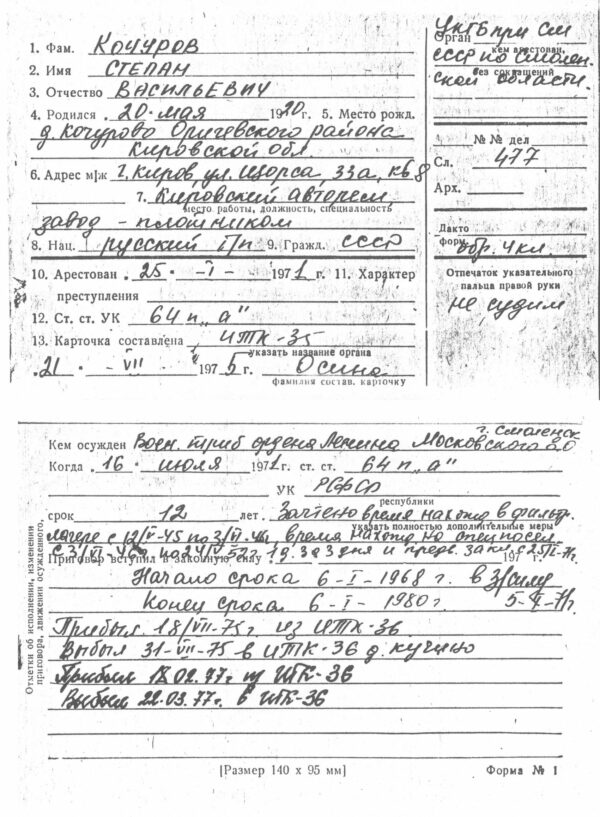 1. Фам. КОЧУРОВ
2. Имя СТЕПАН
3. Отчество ВАСИЛЬЕВИЧ
4. Родился 20 мая 1920 г. 5. Место рожд.
д. Кочурово Оричевского района
Кировской обл.
6. Адрес м/ж г. Киров, ул. Щорса 33а, кв 8
7. Кировский авторем.
место работы, должность, специальность
завод - плотником
8. Нац. русский 9. Гражд. СССР
10. Арестован 25 - I - 1971 г. 11. Характер
преступления
12. Ст. ст. УК 64 п „а“
13. Карточка составлена ИТК-35
указать название органа
21 - VII - 1975 г. Осина
фамилия состав. карточку
УКГБ при СМ
Орган
кем арестован,
СССР по Смолен-
без сокращений
ской области.
№ № дел
Сл. 477
Арх.
Дакто
форм. обр. 4 кл.
Отпечаток указательного
пальца правой руки
не судим
г. Смоленск
Кем осужден Воен. триб ордена Ленина Московского ВО
Когда 16 июля 1971 г. ст. ст. 64 п „а“
УК РСФСР
республики
срок 12 лет. Зачтено время нахожд в фильтр.
указать полностью дополнительные меры
лагере с 12/V-45 по 3/VI-46, время нахожд на спецпосел.
с 3/VI-46 по 24/IV-52 г. 1 д. за 3 дня и предв. закл. с 25/I-71
Приговор вступил в законную силу 197 г.
Начало срока 6-I-1968 г. в з/силу
Конец срока 6-I-1980 г.
Прибыл 18/VII-75 г из ИТК-36
Выбыл 31-VII-75 в ИТК-36 д. Кучино
Прибыл 18.02.77 г из ИТК-36
Выбыл 22.03.77 г. в ИТК-36
Отметки об исполнении, изменении
приговора, движении осужденного,
[Размер 140 х 95 мм] Форма № 1